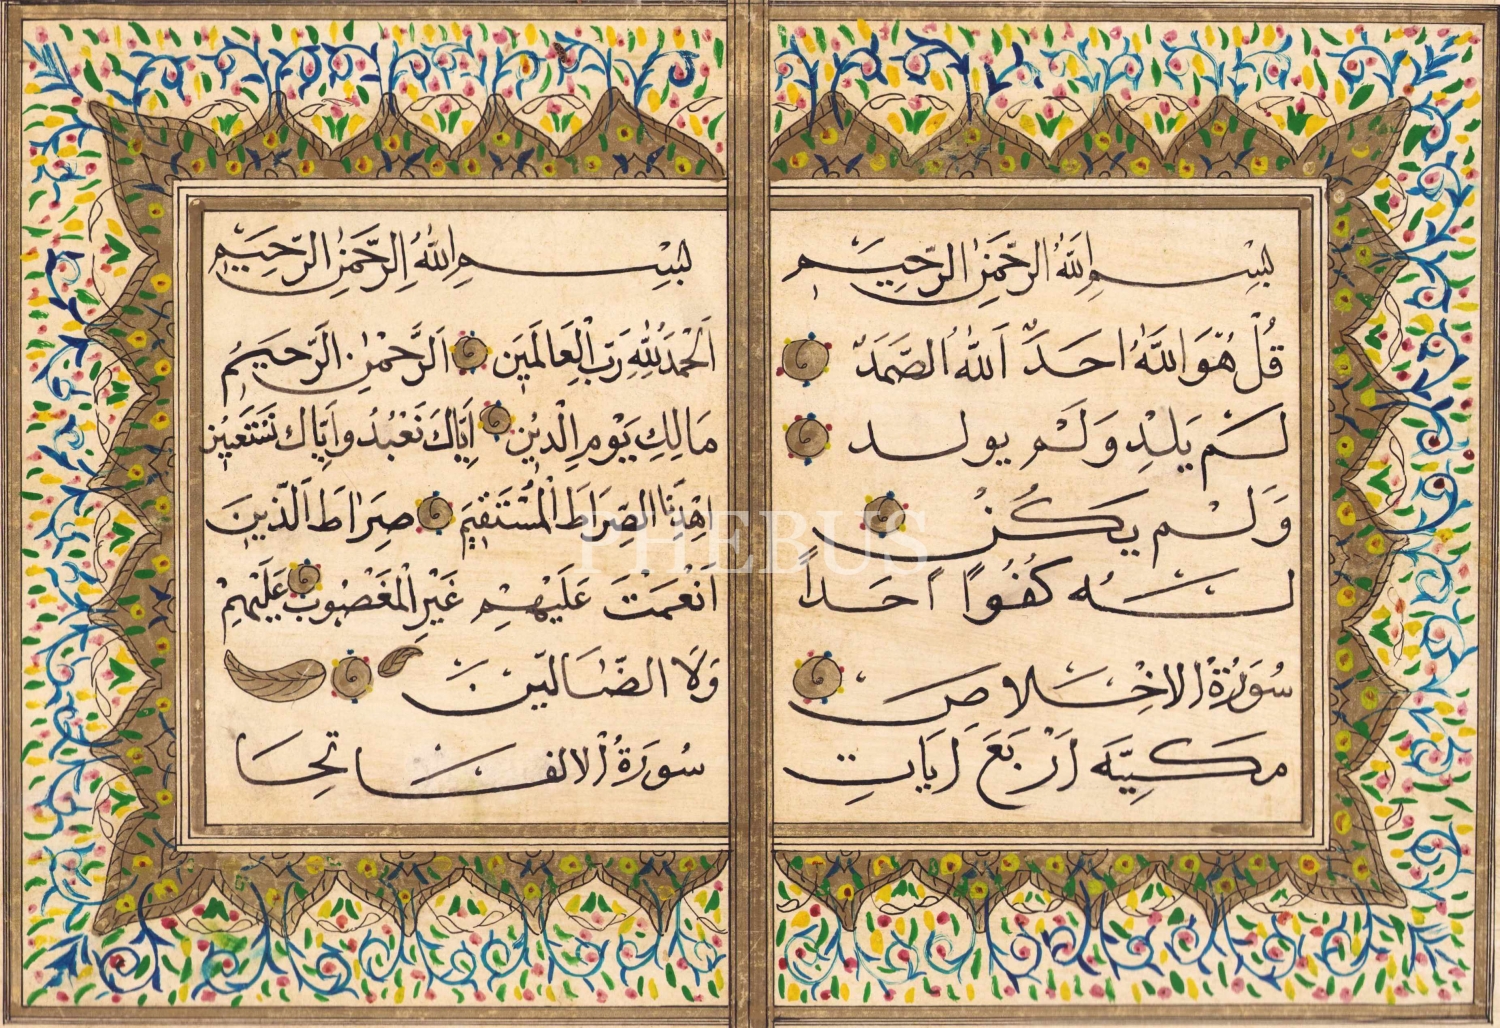 بِسْمِ اللّٰهِ الرَّحْمٰنِ الرَّحِيمِ
قُلْ هُوَ اللّٰهُ احَدٌ اَللّٰهُ الصَّمَدُ
لَمْ يَلِدْ وَلَمْ يولد
وَلَمْ يكُنْ
لَهُ كُفُوًا احَدًا
سُورَةُ الاِخْلاصِ
مَكِيَّه اَرْبَعَ اَيَاتِ
بِسْمِ اللّٰهِ الرَّحْمٰنِ الرَّحِيمِ
اَلْحَمْدُ لِلّٰهِ رَبِّ الْعَالَمِينَ اَلرَّحْمٰنِ الرَّحِيمُ
مَالِكِ يَوْمِ الدِّينِ اِيَّاكَ نَعْبُدُ وَاِيَّاكَ نَسْتَعِينُ
اِهْدِنَا الصِّرَاطَ الْمُسْتَقِيمَ صِرَاطَ الَّذِينَ
اَنْعَمْتَ عَلَيْهِمْ غَيْرِ الْمَغْضُوبِ عَلَيْهِمْ
وَلَا الضَّالِّينَ
سُورَةُ الالفَاتِحَا
PHEBUS